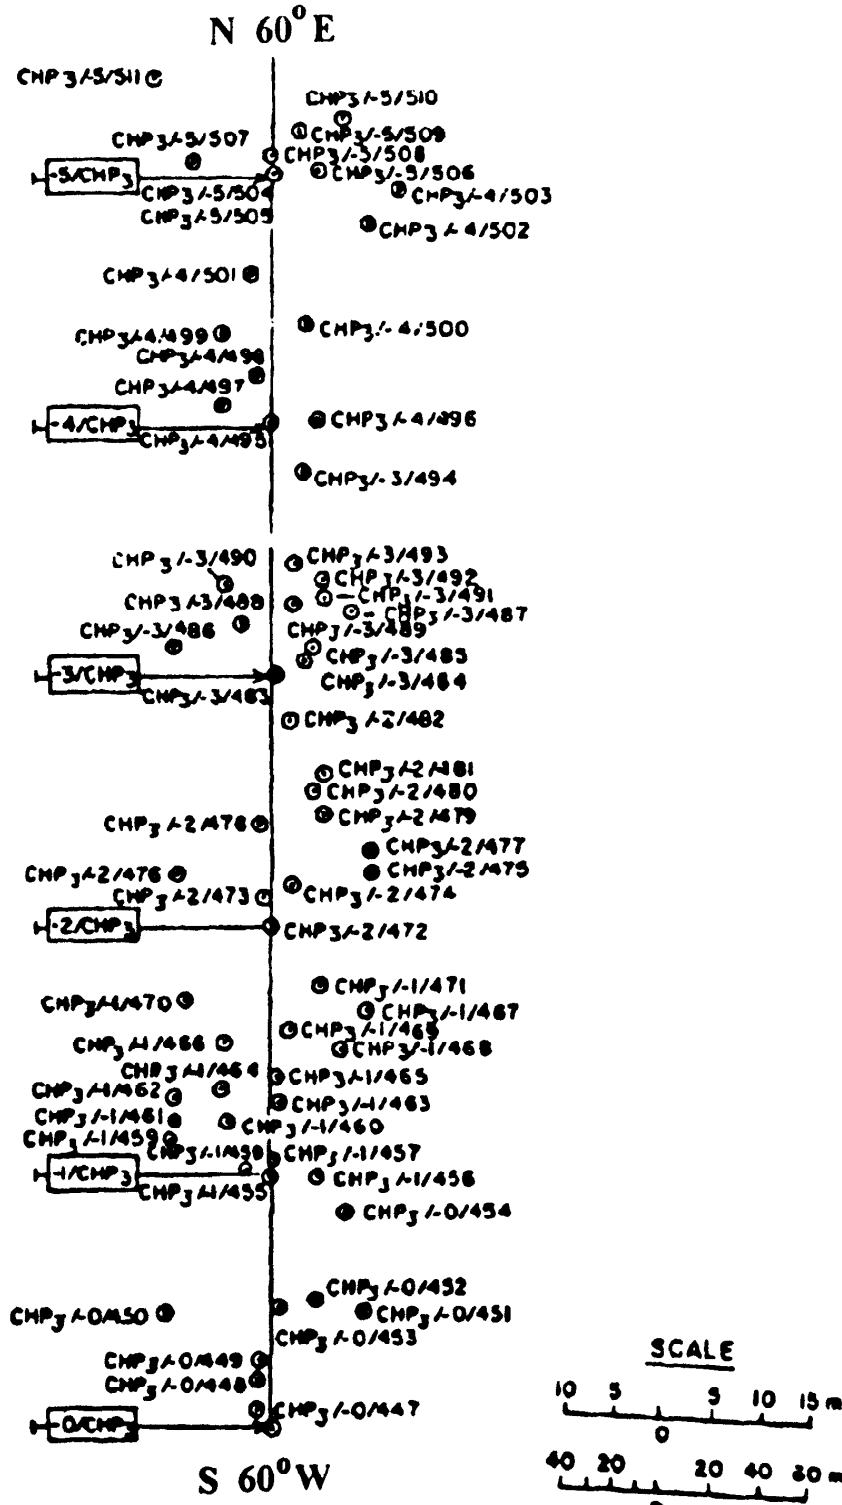 N 60° E
CHP3/-5/511
CHP3/-5/510
CHP3/-5/509
CHP3/-5/507
CHP3/-5/508
-5/CHP3
CHP3/-5/506
CHP3/-5/504
CHP3/-4/503
CHP3/-5/505
CHP3/-4/502
CHP3/-4/501
CHP3/-4/500
CHP3/-4/499
CHP3/-4/498
CHP3/-4/497
-4/CHP3
CHP3/-4/496
CHP3/-4/495
CHP3/-3/494
CHP3/-3/493
CHP3/-3/490
CHP3/-3/492
CHP3/-3/491
CHP3/-3/488
CHP3/-3/487
CHP3/-3/486
CHP3/-3/489
CHP3/-3/485
-3/CHP3
CHP3/-3/484
CHP3/-3/483
CHP3/-2/482
CHP3/-2/481
CHP3/-2/480
CHP3/-2/479
CHP3/-2/478
CHP3/-2/477
CHP3/-2/476
CHP3/-2/475
CHP3/-2/474
CHP3/-2/473
-2/CHP3
CHP3/-2/472
CHP3/-1/471
CHP3/-1/470
CHP3/-1/467
CHP3/-1/469
CHP3/-1/466
CHP3/-1/468
CHP3/-1/464
CHP3/-1/465
CHP3/-1/462
CHP3/-1/463
CHP3/-1/461
CHP3/-1/460
CHP3/-1/459
CHP3/-1/458
CHP3/-1/457
-1/CHP3
CHP3/-1/456
CHP3/-1/455
CHP3/-0/454
CHP3/-0/452
CHP3/-0/450
CHP3/-0/451
CHP3/-0/453
CHP3/-0/449
CHP3/-0/448
CHP3/-0/447
-0/CHP3
S 60° W
SCALE
10 5 5 10 15 m
0
40 20 20 40 60 m